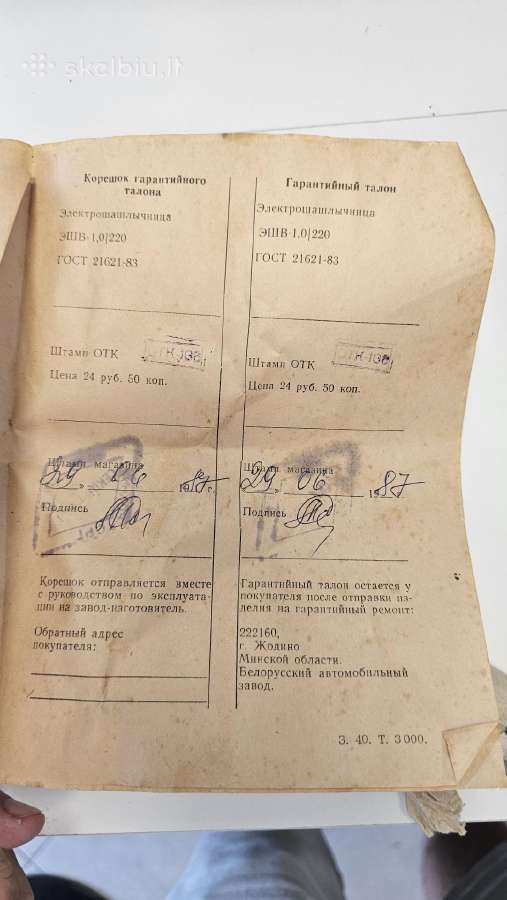 skelbiu.lt
Корешок гарантийного
талона
Электрошашлычница
ЭШВ-1,0/220
ГОСТ 21621-83
Штамп ОТК
ОТК-136
Цена 24 руб. 50 коп.
Штамп магазина
29 06 1987г.
Подпись
Корешок отправляется вместе
с руководством по эксплуата-
ции на завод-изготовитель.
Обратный адрес
покупателя:
Гарантийный талон
Электрошашлычница
ЭШВ-1,0/220
ГОСТ 21621-83
Штамп ОТК
ОТК-136
Цена 24 руб. 50 коп.
Штамп магазина
29 06 1987
Подпись
Гарантийный талон остается у
покупателя после отправки из-
делия на гарантийный ремонт:
222160,
г. Жодино
Минской области.
Белорусский автомобильный
завод.
З. 40. Т. 3 000.